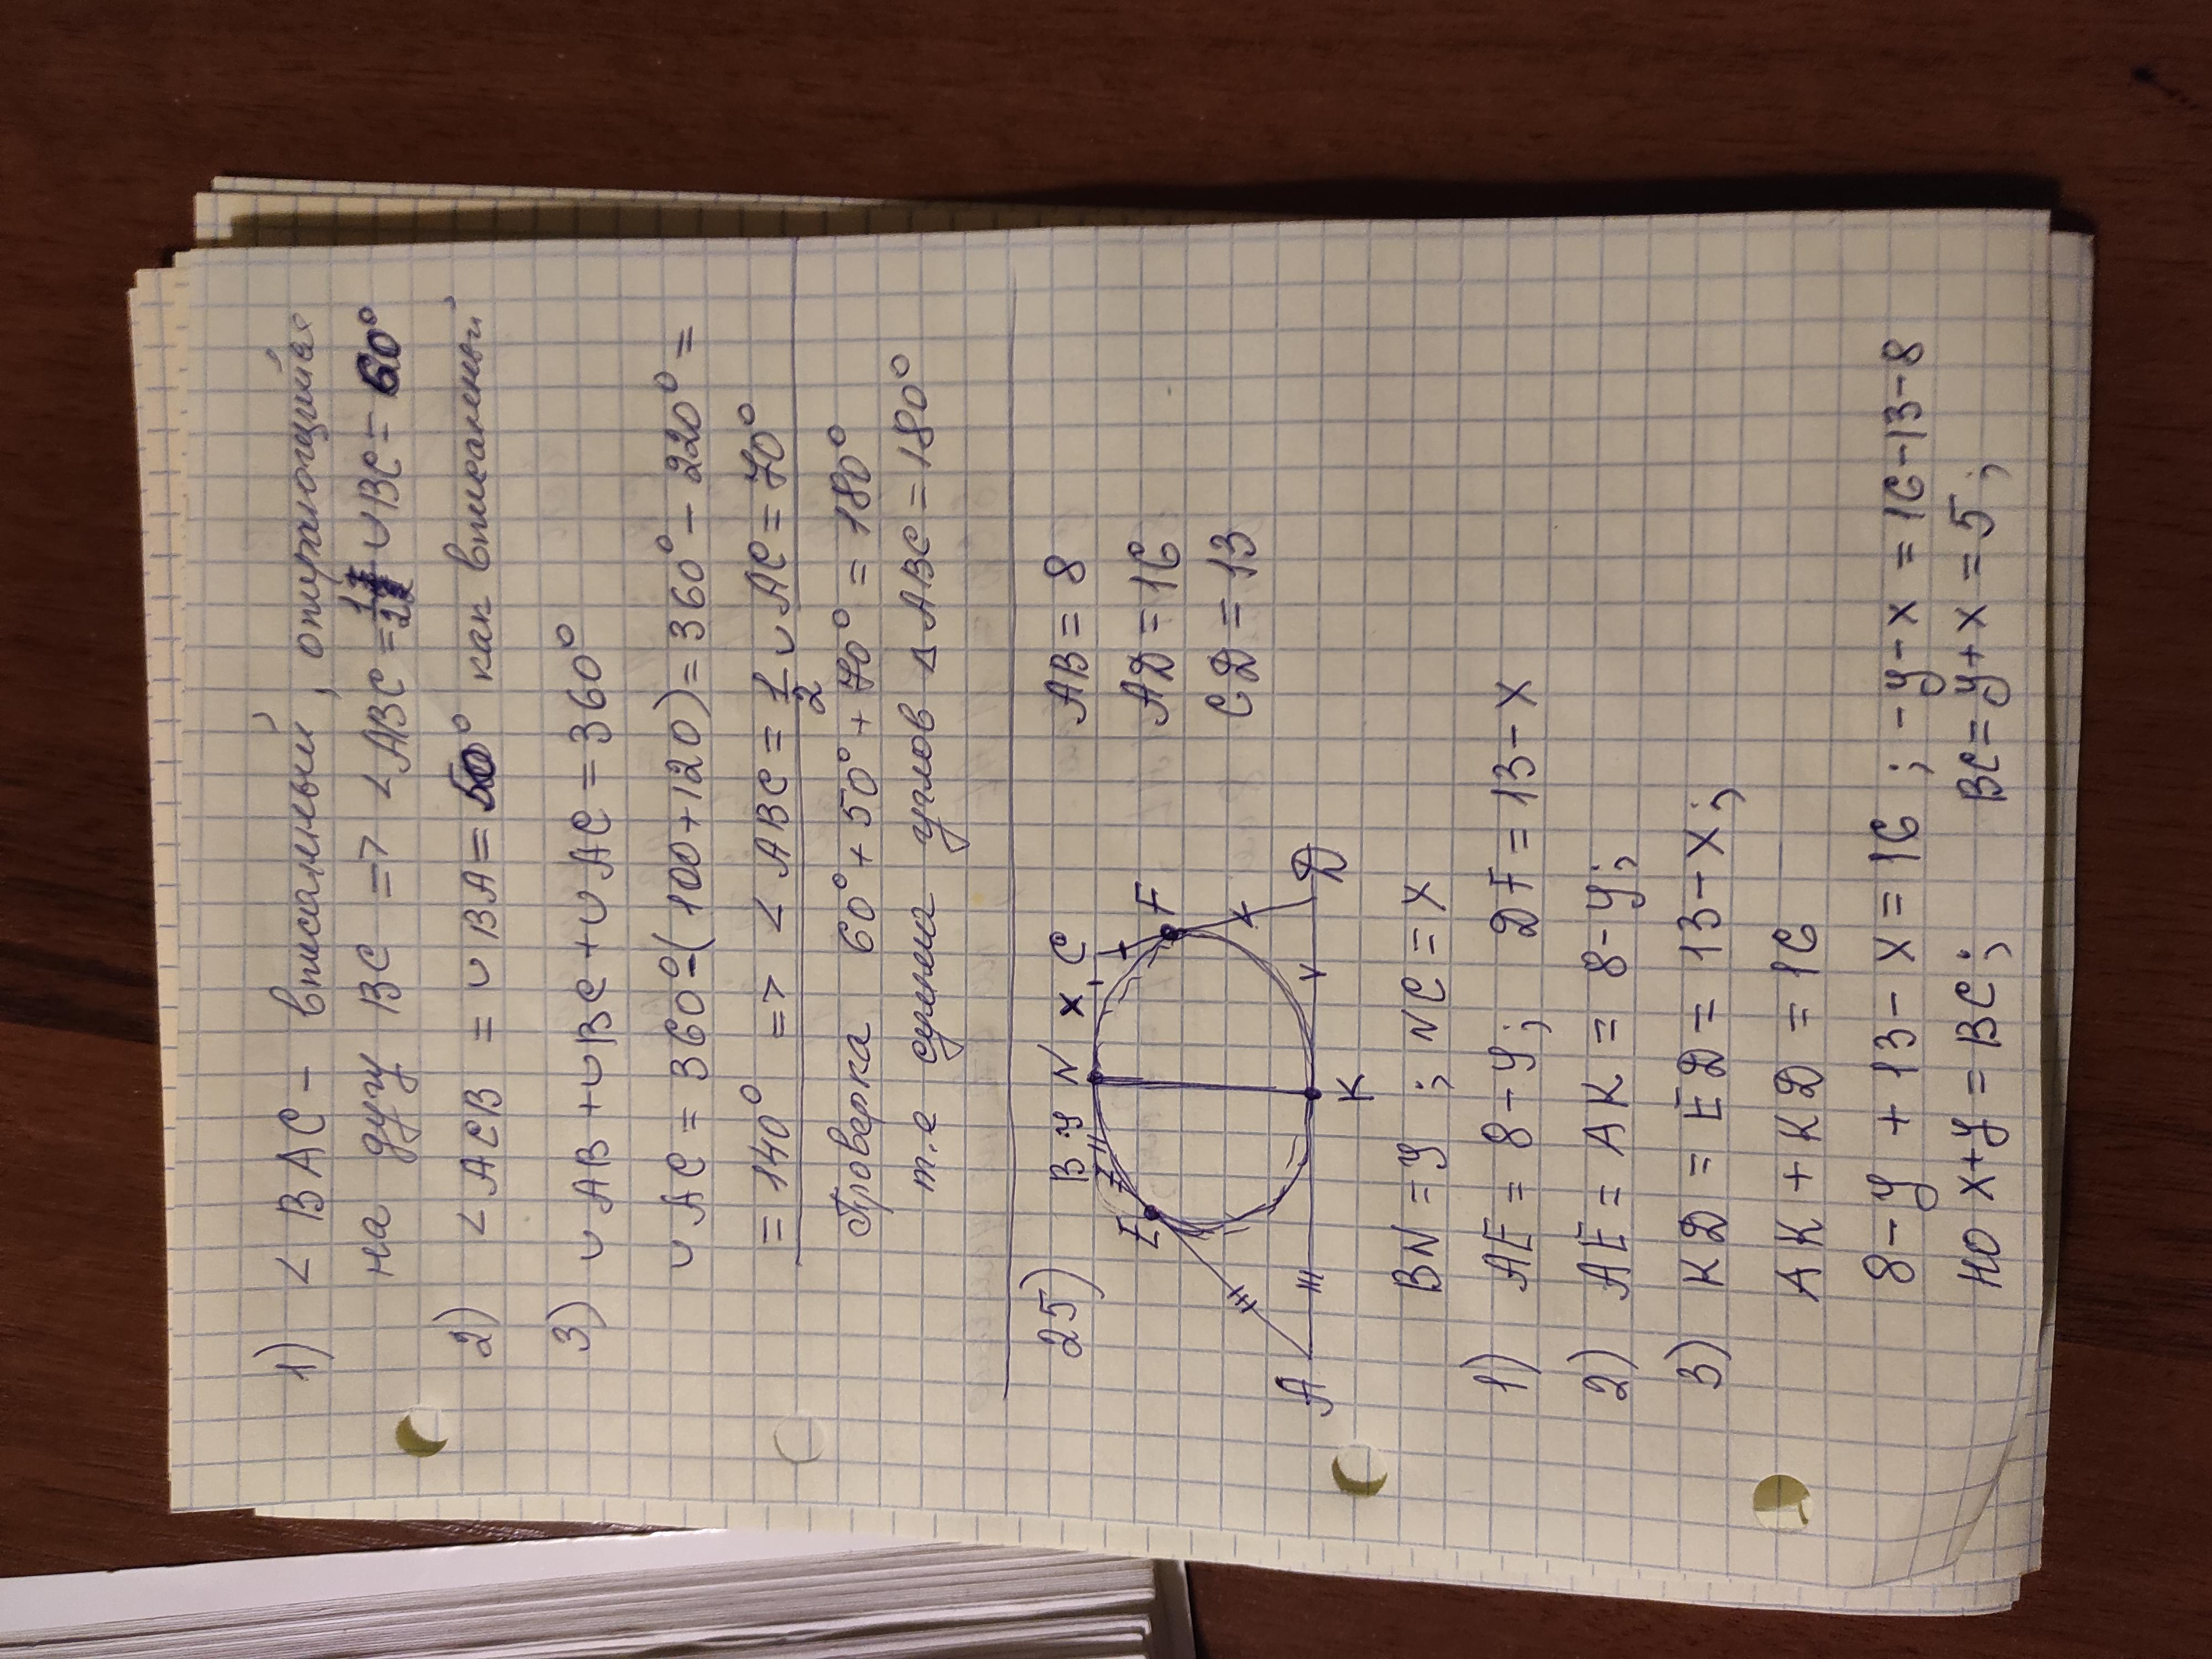 1) < BAC - вписанный, опирающийся
на дугу BC => < ABC = 1/2 ∪BC = 60°
2) < ACB = ∪BA = 50° как вписанный
3) ∪AB + ∪BC + ∪AC = 360°
∪AC = 360° - (100 + 120) = 360° - 220° =
= 140° => < ABC = 1/2 ∪AC = 70°
Проверка 60° + 50° + 70° = 180°
т.е сумма углов △ABC = 180°
25)
B y N x C
E
F
A
K
D
AB = 8
AD = 16
CD = 13
BN = y ; NC = x
1) AE = 8 - y ; DF = 13 - x
2) AE = AK = 8 - y;
3) KD = ED = 13 - x;
AK + KD = 16
8 - y + 13 - x = 16 ; -y - x = 16 - 13 - 8
но x + y = BC; BC = y + x = 5;